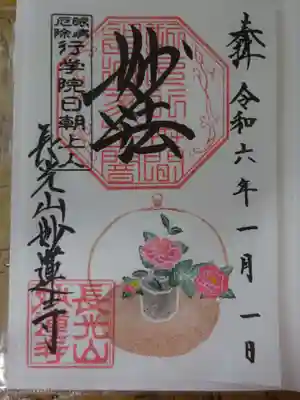 奉拝 令和六年一月一日
妙法
眼病
厄除
行学院日朝上人
長光山妙蓮寺
長光山
妙蓮寺